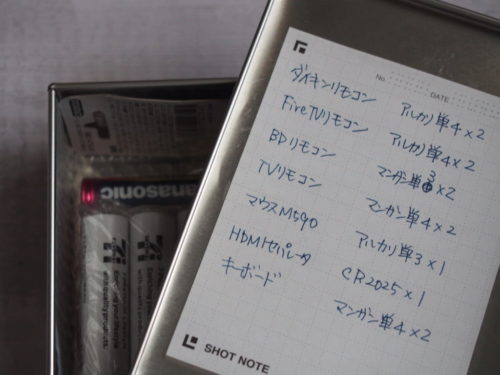 No.
DATE
ダイキンリモコン アルカリ単4×2
FireTVリモコン アルカリ単4×2
BDリモコン マンガン単3×2
TVリモコン マンガン単4×2
マウスM590 アルカリ単3×1
HDMIセパレータ CR2025×1
キーボード マンガン単4×2
SHOT NOTE
Panasonic